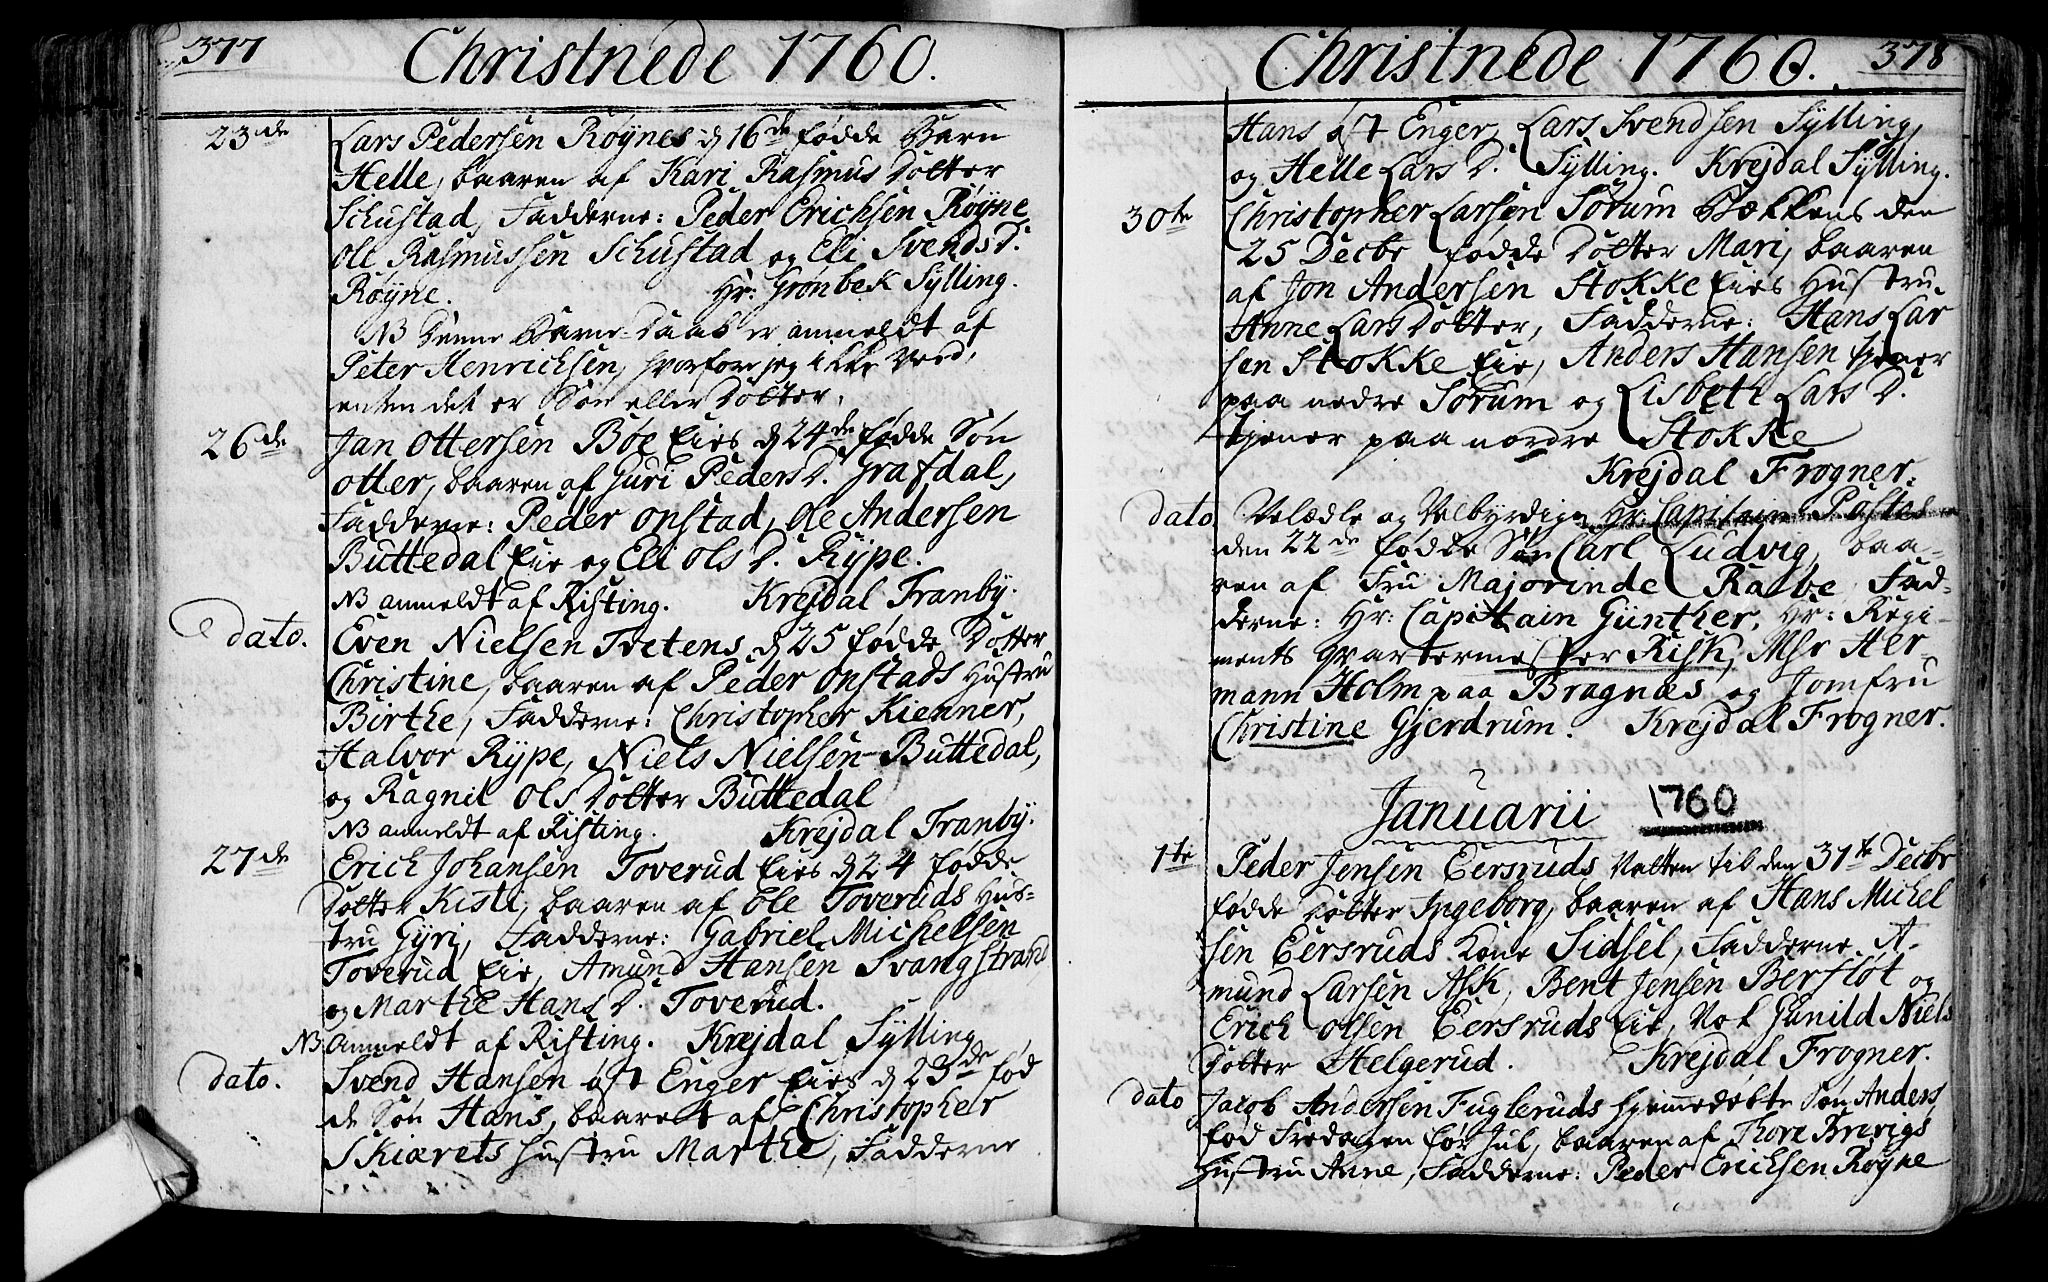 377
Christnede 1760.
23de
Lars Pedersen Röynes d 16de födde Barn
Helle, baaren af Kari Rasmus Dotter
Schustad, Fadderne: Peder Erichsen Röyne
Ole Rasmussen Schustad og Eli Svends D.
Röyne. Hr: Grönbek Sylling.
NB Denne Barne-Daab er anmeldt af
Peter Henrichsen, hvorfore jeg ikke veed,
enten det er Sön eller Dotter.
26de
Jan Ottersen Böe Eies d 24de födde Sön
Otter, baaren af Guri Peders D. Grafdal,
Fadderne: Peder Onstad, Ole Andersen
Buttedal Eie og Eli Ols D. Rype.
NB anmeldt af Risting. Krejdal Tranby.
dato.
Even Nielsen Tvetens d 25 födde Dotter
Christine, baaren af Peder Onstads Hustru
Birthe, Fadderne: Christopher Kienner,
Halvor Rype, Niels Nielsen Buttedal,
og Ragnil Ols Dotter Buttedal
NB anmeldt af Risting. Krejdal Tranby.
27de
Erich Johansen Toverud Eies d 24 födde
Dotter Kisti, baaren af Ole Toveruds Hus-
tru Gyri, Fadderne: Gabriel Michelsen
Toverud Eie, Amund Hansen Svangstrand
og Marthe Hans D. Toverud.
NB Anmeldt af Risting. Krejdal Sylling
dato.
Svend Hansen öst Enger Eies d 23de föd
de Sön Hans, baaret af Christopher
Skiærets Hustru Marthe, Fadderne
Christnede 1760. 378
Hans öst Enger, Lars Svendsen Sylling,
og Helle Lars D. Sylling. Krejdal Sylling.
30te
Christopher Larsen Sörum Bækkens den
25 Decbr födde Dotter Mari, baaren
af Jon Andersen Stokke Eies Hustru
Anne Lars Dotter, Fadderne: Hans Lar
sen Stokke Eie, Anders Hansen tjener
paa nedre Sörum og Lisbeth Lars D.
tjener paa nordre Stokke
Krejdal Frogner.
dato
Velædle og Velbyrdige Hr: Capitain
den 22de födde Sön Carl Ludvig, baa-
ren af Fru Majorinde Rabe, Fad-
derne: Hr: Capitain Günther, Hr: Regi-
ments Qvartermester Risk, Msr Her-
mann Holm paa Bragnæs og Jomfru
Christine Gjerdrum. Krejdal Frogner.
Januarii 1760
1te
Peder Jensen Eersruds Natten til den 31te Decbr
födde Dotter Ingeborg, baaren af Hans Michel
sen Eersruds Kone Sidsel, Fadderne A-
mund Larsen Ask, Bent Jensen Berflöt og
Erich Olsen Eersruds Eie, Not Gunild Niels
Dotter Helgerud. Krejdal Frogner.
dato
Jacob Andersen Fugleruds hjemmedöbte Sön Anders
föd Fredagen för Jul, baaren af Thore Brevigs
Hustru Anne, Fadderne: Peder Ericksen Röyne